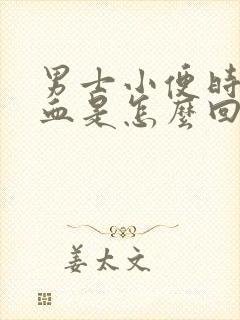 男士小便时
血是怎麼回
姜太文